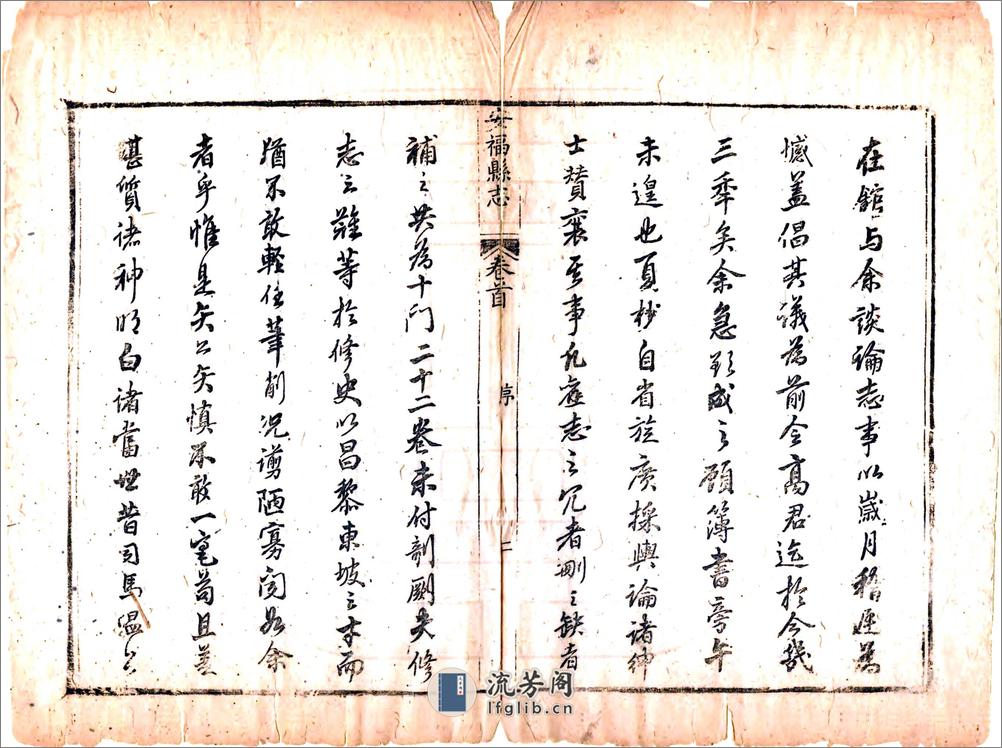 在館與余談論志事以歲月稽遲為
憾蓋倡其議為前令高君迄於今幾
三年矣余急欲成之顧簿書旁午
未遑也夏杪自省旋廣採輿論諸紳
士贊襄其事凡舊志之冗者刪之缺者
安福縣志 卷首 序 二
補之共為十門二十二卷未付剞劂夫修
志之難等於修史以昌黎東坡之才而
猶不敢輕任筆削況謭陋寡聞如余
者乎惟是矢公矢慎不敢一毫苟且並
堪質諸神明白諸當世昔司馬溫公
流芳阁
lfglib.cn